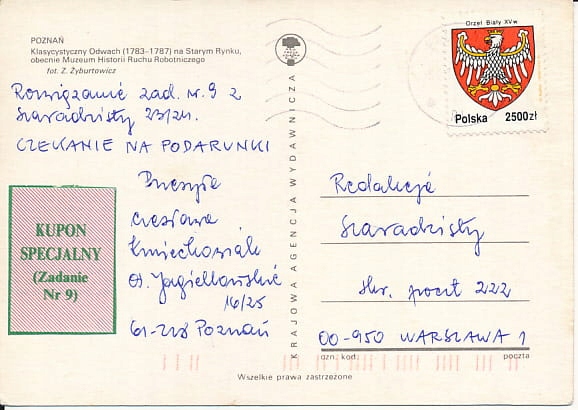 POZNAŃ
Klasycystyczny Odwach (1783-1787) na Starym Rynku,
obecnie Muzeum Historii Ruchu Robotniczego
fot. Z. Żyburtowicz
Rozwiązanie zad. nr 9 z
Szaradzisty 23/24.
CZEKANIE NA PODARUNKI
KUPON
SPECJALNY
(Zadanie
Nr 9)
Przesyła
Czesława
Kmiechowiak
Jagiellońskie
16/25
61-218 Poznań
KRAJOWA AGENCJA WYDAWNICZA
Orzeł Biały XV w.
Polska 2500zł
Redakcja
Szaradzisty
skr. poczt 222
00-950 WARSZAWA 1
ozn. kod.
poczta
Wszelkie prawa zastrzeżone